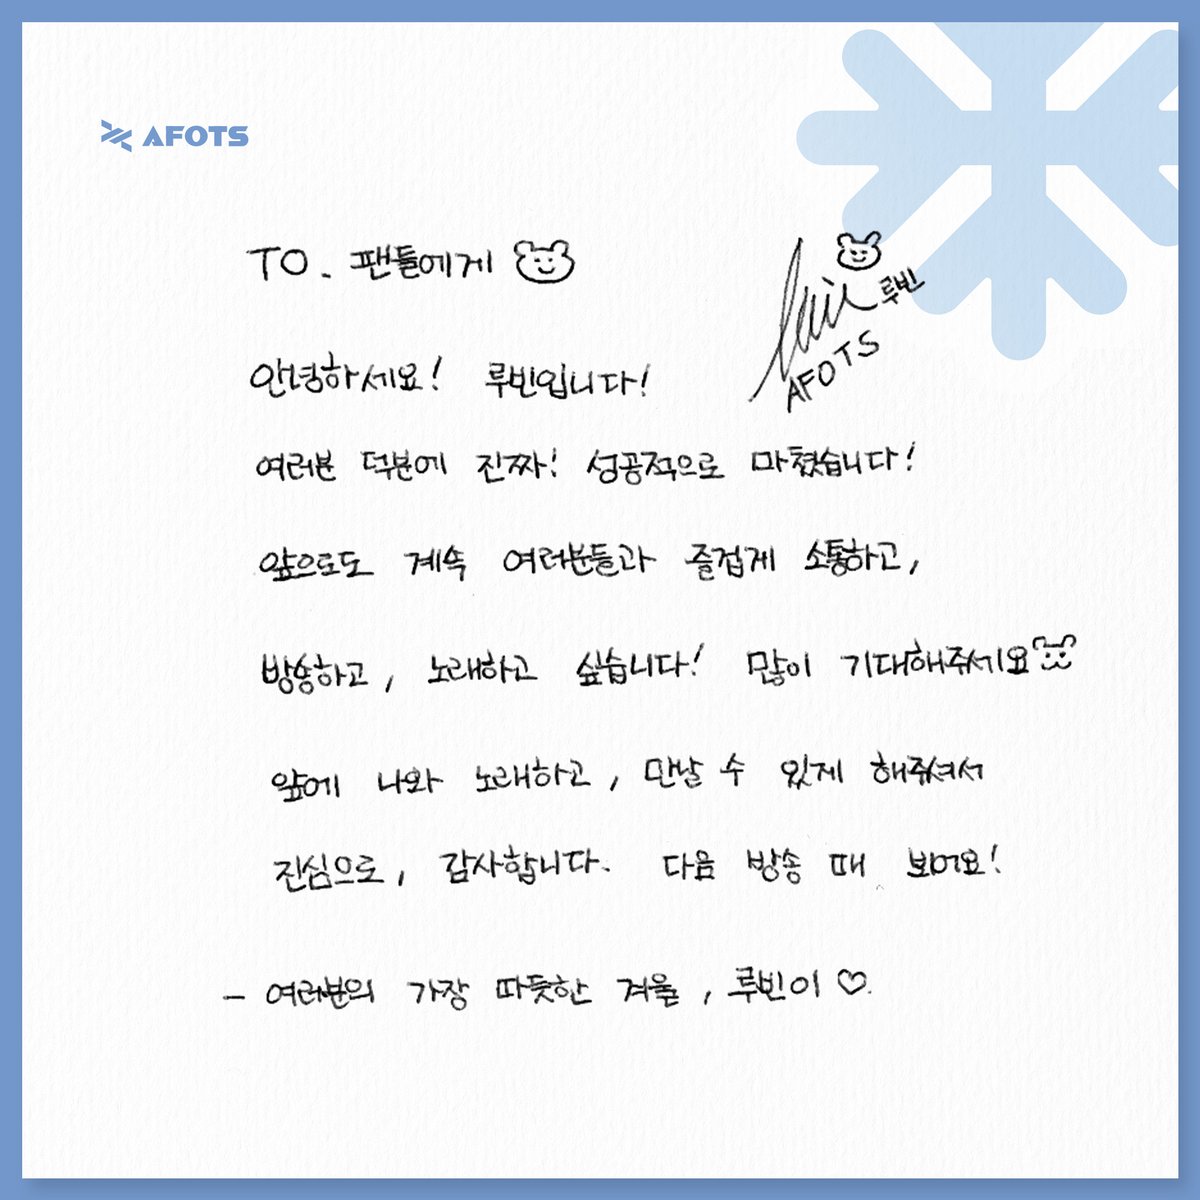 AFOTS
TO. 팬들에게
루빈
AFOTS
안녕하세요! 루빈입니다!
여러분 덕분에 진짜! 성공적으로 마쳤습니다!
앞으로도 계속 여러분들과 즐겁게 소통하고,
방송하고, 노래하고 싶습니다! 많이 기대해주세요
앞에 나와 노래하고, 만날 수 있게 해주셔서
진심으로, 감사합니다. 다음 방송 때 보어요!
- 여러분의 가장 따듯한 겨울, 루빈이 ♡.